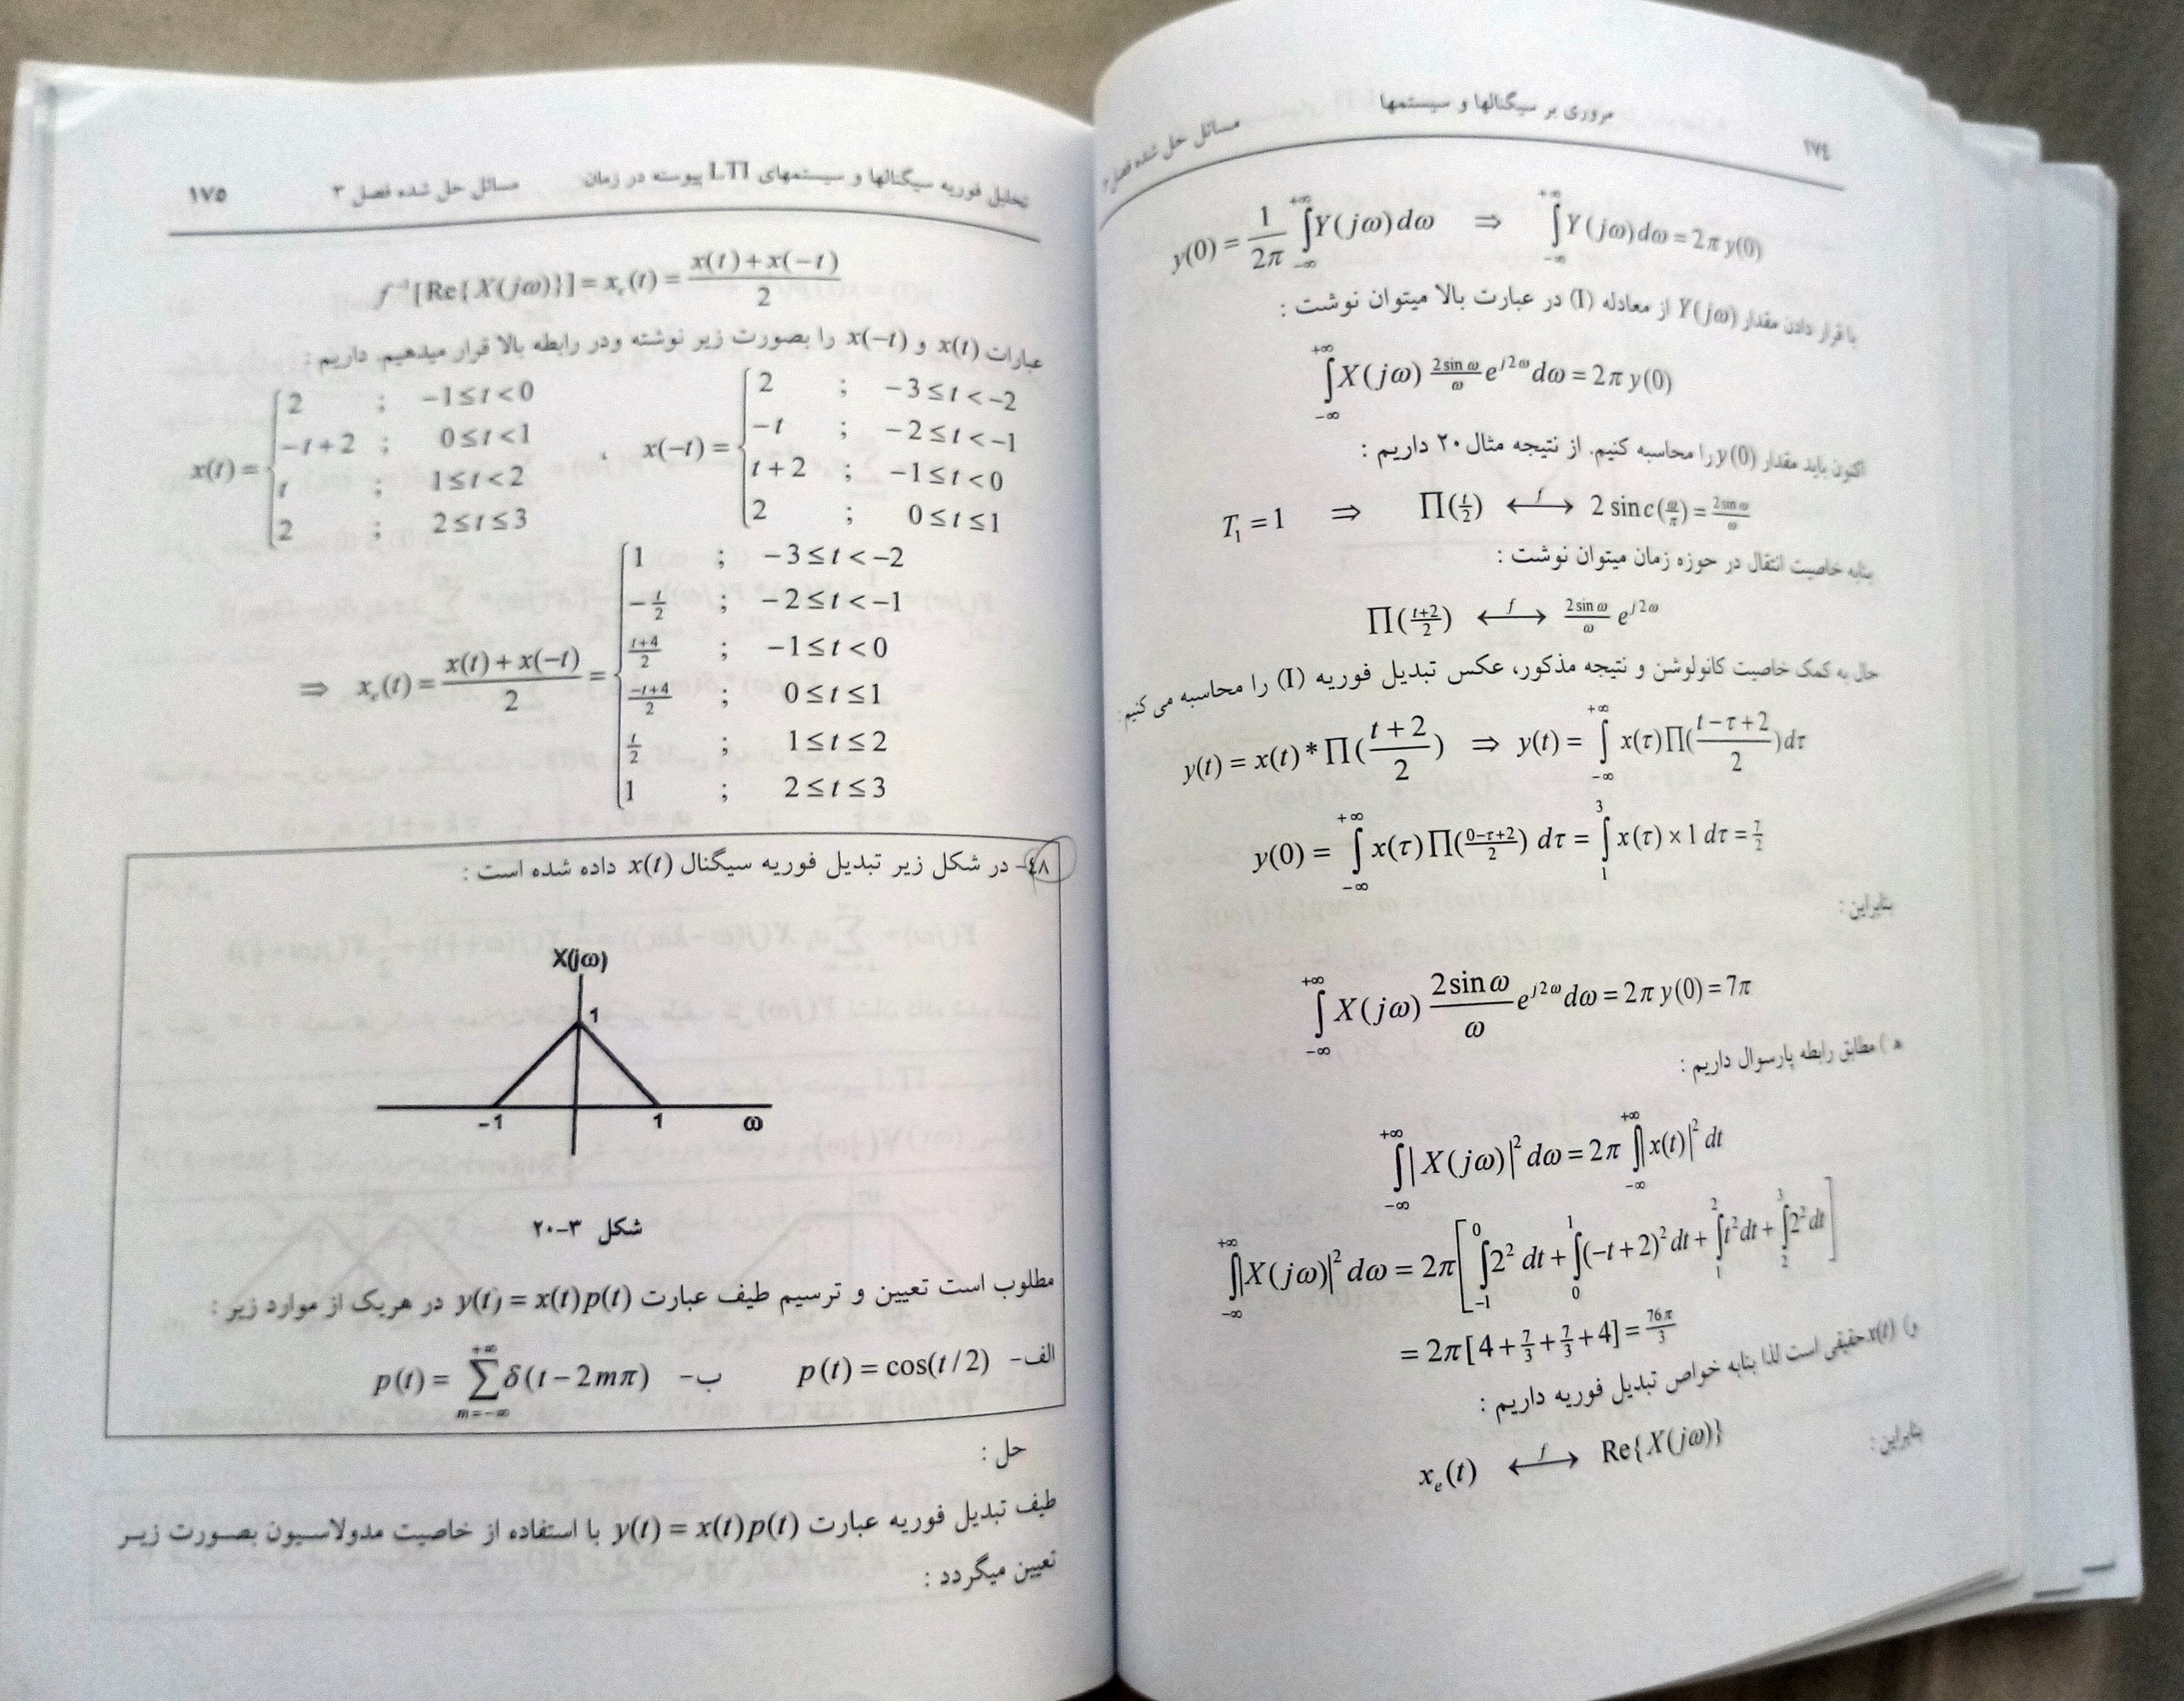 ۱۷٤ مروری بر سیگنالها و سیستمها مسائل حل شده فصل ۳
y(0) = \frac{1}{2π} ∫_{-∞}^{+∞} Y(jω)dω ⇒ ∫_{-∞}^{+∞} Y(jω)dω = 2π y(0)
با قرار دادن مقدار Y(jω) از معادله (I) در عبارت بالا میتوان نوشت :
∫_{-∞}^{+∞} X(jω) \frac{2sin ω}{ω} e^{j2ω} dω = 2π y(0)
اکنون باید مقدار y(0) را محاسبه کنیم. از نتیجه مثال ۲۰ داریم :
T_1 = 1 ⇒ ∏(\frac{t}{2}) ⟷^{f} 2 sinc(\frac{ω}{π}) = \frac{2sin ω}{ω}
بنابه خاصیت انتقال در حوزه زمان میتوان نوشت :
∏(\frac{t+2}{2}) ⟷^{f} \frac{2sin ω}{ω} e^{j2ω}
حال به کمک خاصیت کانولوشن و نتیجه مذکور، عکس تبدیل فوریه (I) را محاسبه می کنیم:
y(t) = x(t) * ∏(\frac{t+2}{2}) ⇒ y(t) = ∫_{-∞}^{+∞} x(τ)∏(\frac{t-τ+2}{2})dτ
y(0) = ∫_{-∞}^{+∞} x(τ)∏(\frac{0-τ+2}{2}) dτ = ∫_{1}^{3} x(τ)×1 dτ = \frac{7}{2}
بنابراین :
∫_{-∞}^{+∞} X(jω) \frac{2sin ω}{ω} e^{j2ω} dω = 2π y(0) = 7π
ه ) مطابق رابطه پارسوال داریم :
∫_{-∞}^{+∞} |X(jω)|^2 dω = 2π ∫_{-∞}^{+∞} |x(t)|^2 dt
∫_{-∞}^{+∞} |X(jω)|^2 dω = 2π[∫_{-1}^{0} 2^2 dt + ∫_{0}^{1} (-t+2)^2 dt + ∫_{1}^{2} t^2 dt + ∫_{2}^{3} 2^2 dt]
= 2π[4 + \frac{7}{3} + \frac{7}{3} + 4] = \frac{76π}{3}
و) x(t) حقیقی است لذا بنابه خواص تبدیل فوریه داریم :
x_e(t) ⟷^{f} Re{X(jω)}
بنابراین :
تحلیل فوریه سیگنالها و سیستمهای LTI پیوسته در زمان مسائل حل شده فصل ۳ ۱۷۵
f^{-1}[Re{X(jω)}] = x_e(t) = \frac{x(t)+x(-t)}{2}
عبارات x(t) و x(-t) را بصورت زیر نوشته ودر رابطه بالا قرار میدهیم. داریم :
x(t) = { 2 ; -1≤t<0
-t+2 ; 0≤t<1
t ; 1≤t<2
2 ; 2≤t≤3
, x(-t) = { 2 ; -3≤t<-2
-t ; -2≤t<-1
t+2 ; -1≤t<0
2 ; 0≤t≤1
⇒ x_e(t) = \frac{x(t)+x(-t)}{2} = { 1 ; -3≤t<-2
-\frac{t}{2} ; -2≤t<-1
\frac{t+4}{2} ; -1≤t<0
\frac{-t+4}{2} ; 0≤t≤1
\frac{t}{2} ; 1≤t≤2
1 ; 2≤t≤3
٤۸- در شکل زیر تبدیل فوریه سیگنال x(t) داده شده است :
X(jω)
1
-1 1 ω
شکل ۳-۲۰
مطلوب است تعیین و ترسیم طیف عبارت y(t) = x(t)p(t) در هریک از موارد زیر :
الف- p(t) = cos(t/2) ب- p(t) = ∑_{m=-∞}^{+∞} δ(t-2mπ)
حل :
طیف تبدیل فوریه عبارت y(t) = x(t)p(t) با استفاده از خاصیت مدولاسیون بصورت زیر
تعیین میگردد :